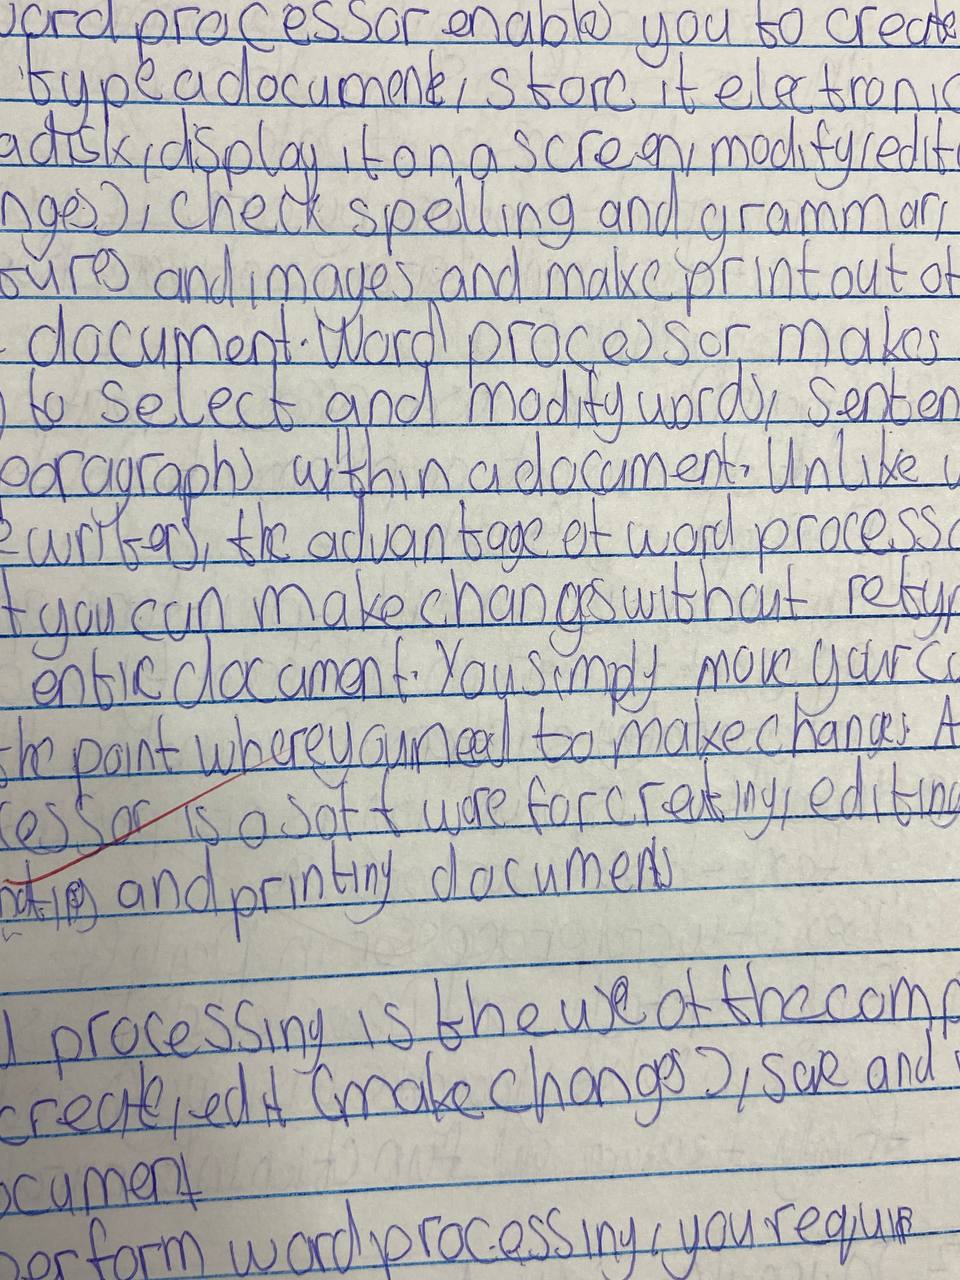 word processor enables you to create
type a document, store it electronic
a disk, display it on a screen, modify (edit
nges), check spelling and grammar,
tures and images and make print out of
document. Word processor makes
to select and modify words, senten
paragraphs within a document. Unlike
ewriters, the advantage of word processo
t you can make changes without retyp
entire document. You simply move your cu
the point where you need to make changes. A
cessor is a soft ware for creating, editing
and printing documents
processing is the use of the comp
create, edit (make changes), save and
ocument
perform word processing, you require